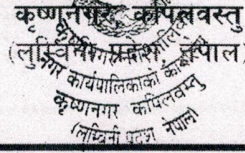 कृष्णनगर कपिलवस्तु
(लुम्बिनी प्रदेश नेपाल)
नगर कार्यपालिकाको कार्यालय
कृष्णनगर कपिलवस्तु
(लुम्बिनी प्रदेश नेपाल)